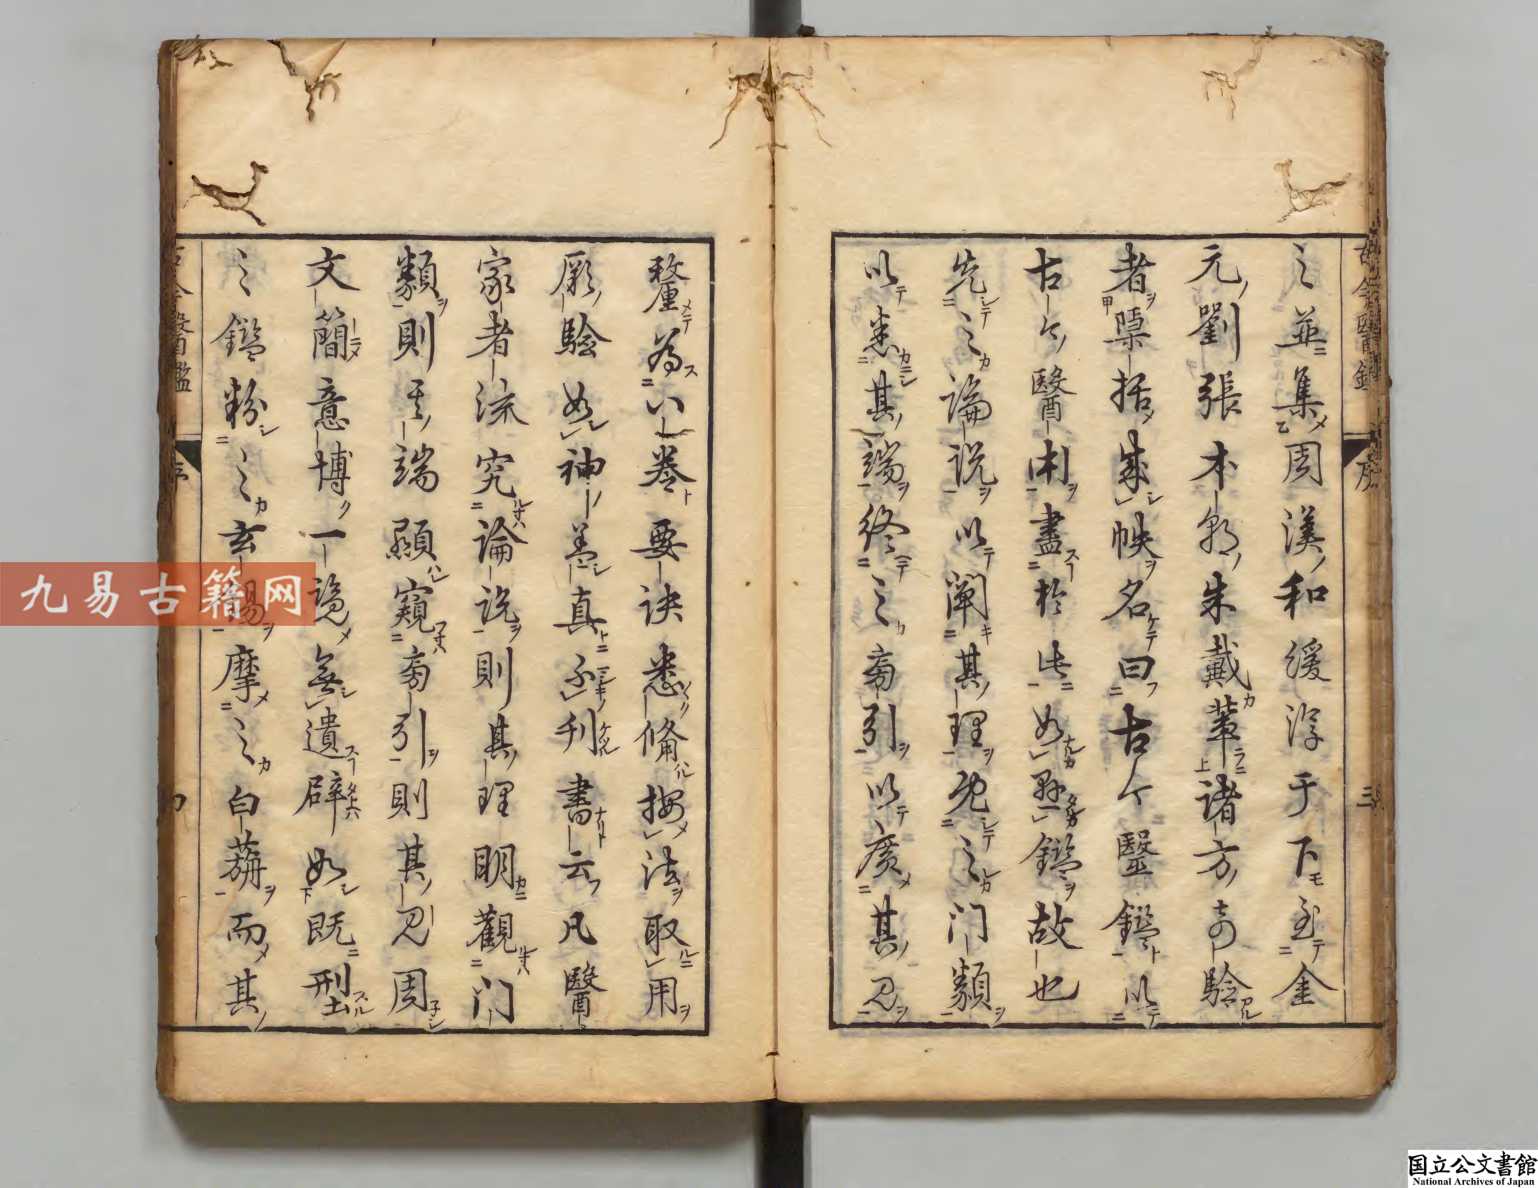 之並集周漢和緩淳于下至金
元劉張本朝朱戴輩諸方奇驗
者櫽括成帙名曰古今醫鑑以
古今醫術盡於此如懸鑑故也
先之論說以闡其理既之門類
以悉其端終之裔引以廣其見
古今醫鑑
序
三
釐為八卷要訣悉備按法取用
厥驗如神善真不刊書云凡醫
家者流究論說則其理明觀門
類則其端顯窺裔引則其見周
文簡意博一覽無遺辟如既型
之鑑粉之玄錫摩之白旃而其
序
四
九易古籍网
国立公文書館
National Archives of Japan